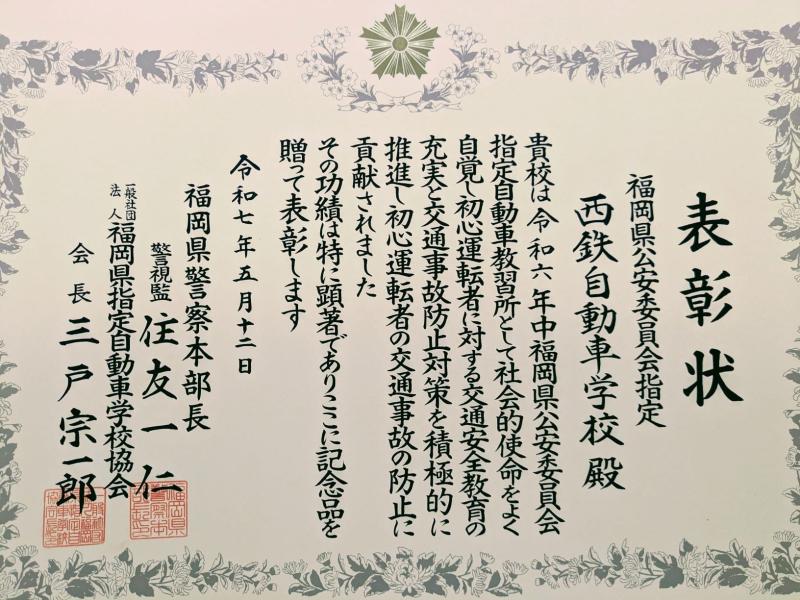 表彰状
福岡県公安委員会指定
西鉄自動車学校殿
貴校は令和六年中福岡県公安委員会
指定自動車教習所として社会的使命をよく
自覚し初心運転者に対する交通安全教育の
充実と交通事故防止対策を積極的に
推進し初心運転者の交通事故の防止に
貢献されました
その功績は特に顕著でありここに記念品を
贈って表彰します
令和七年五月十二日
福岡県警察本部長
警視監 住友一仁
一般社団法人 福岡県指定自動車学校協会
会長 三戸宗一郎